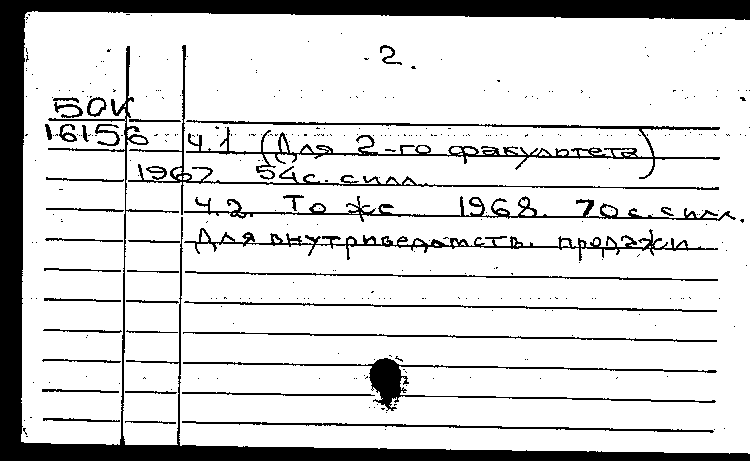 2.
50К
16156 ч.1 (Для 2-го факультета)
1967. 54с. силл.
ч.2. То же 1968. 70с. силл.
Для внутриведомств. продажи.